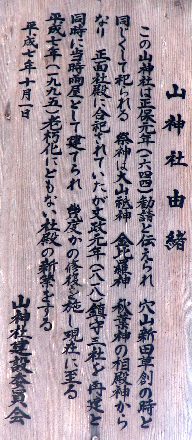 山神社由緒
この山神社は正保元年(一六四四)勧請と伝えられ 穴山新田草創の時と
同じくして祀られる 祭神は大山祇神 金比羅神 秋葉神の相殿神から
なり 正面社殿に合祀されていたが文政元年(一八一八)鎮守三社を再建と
同時に当時雨屋として建てられ 幾度かの修復を施し 現在に至る
平成七年(一九九五)老朽化にともない社殿の新築をする
平成七年十月一日
山神社建設委員会